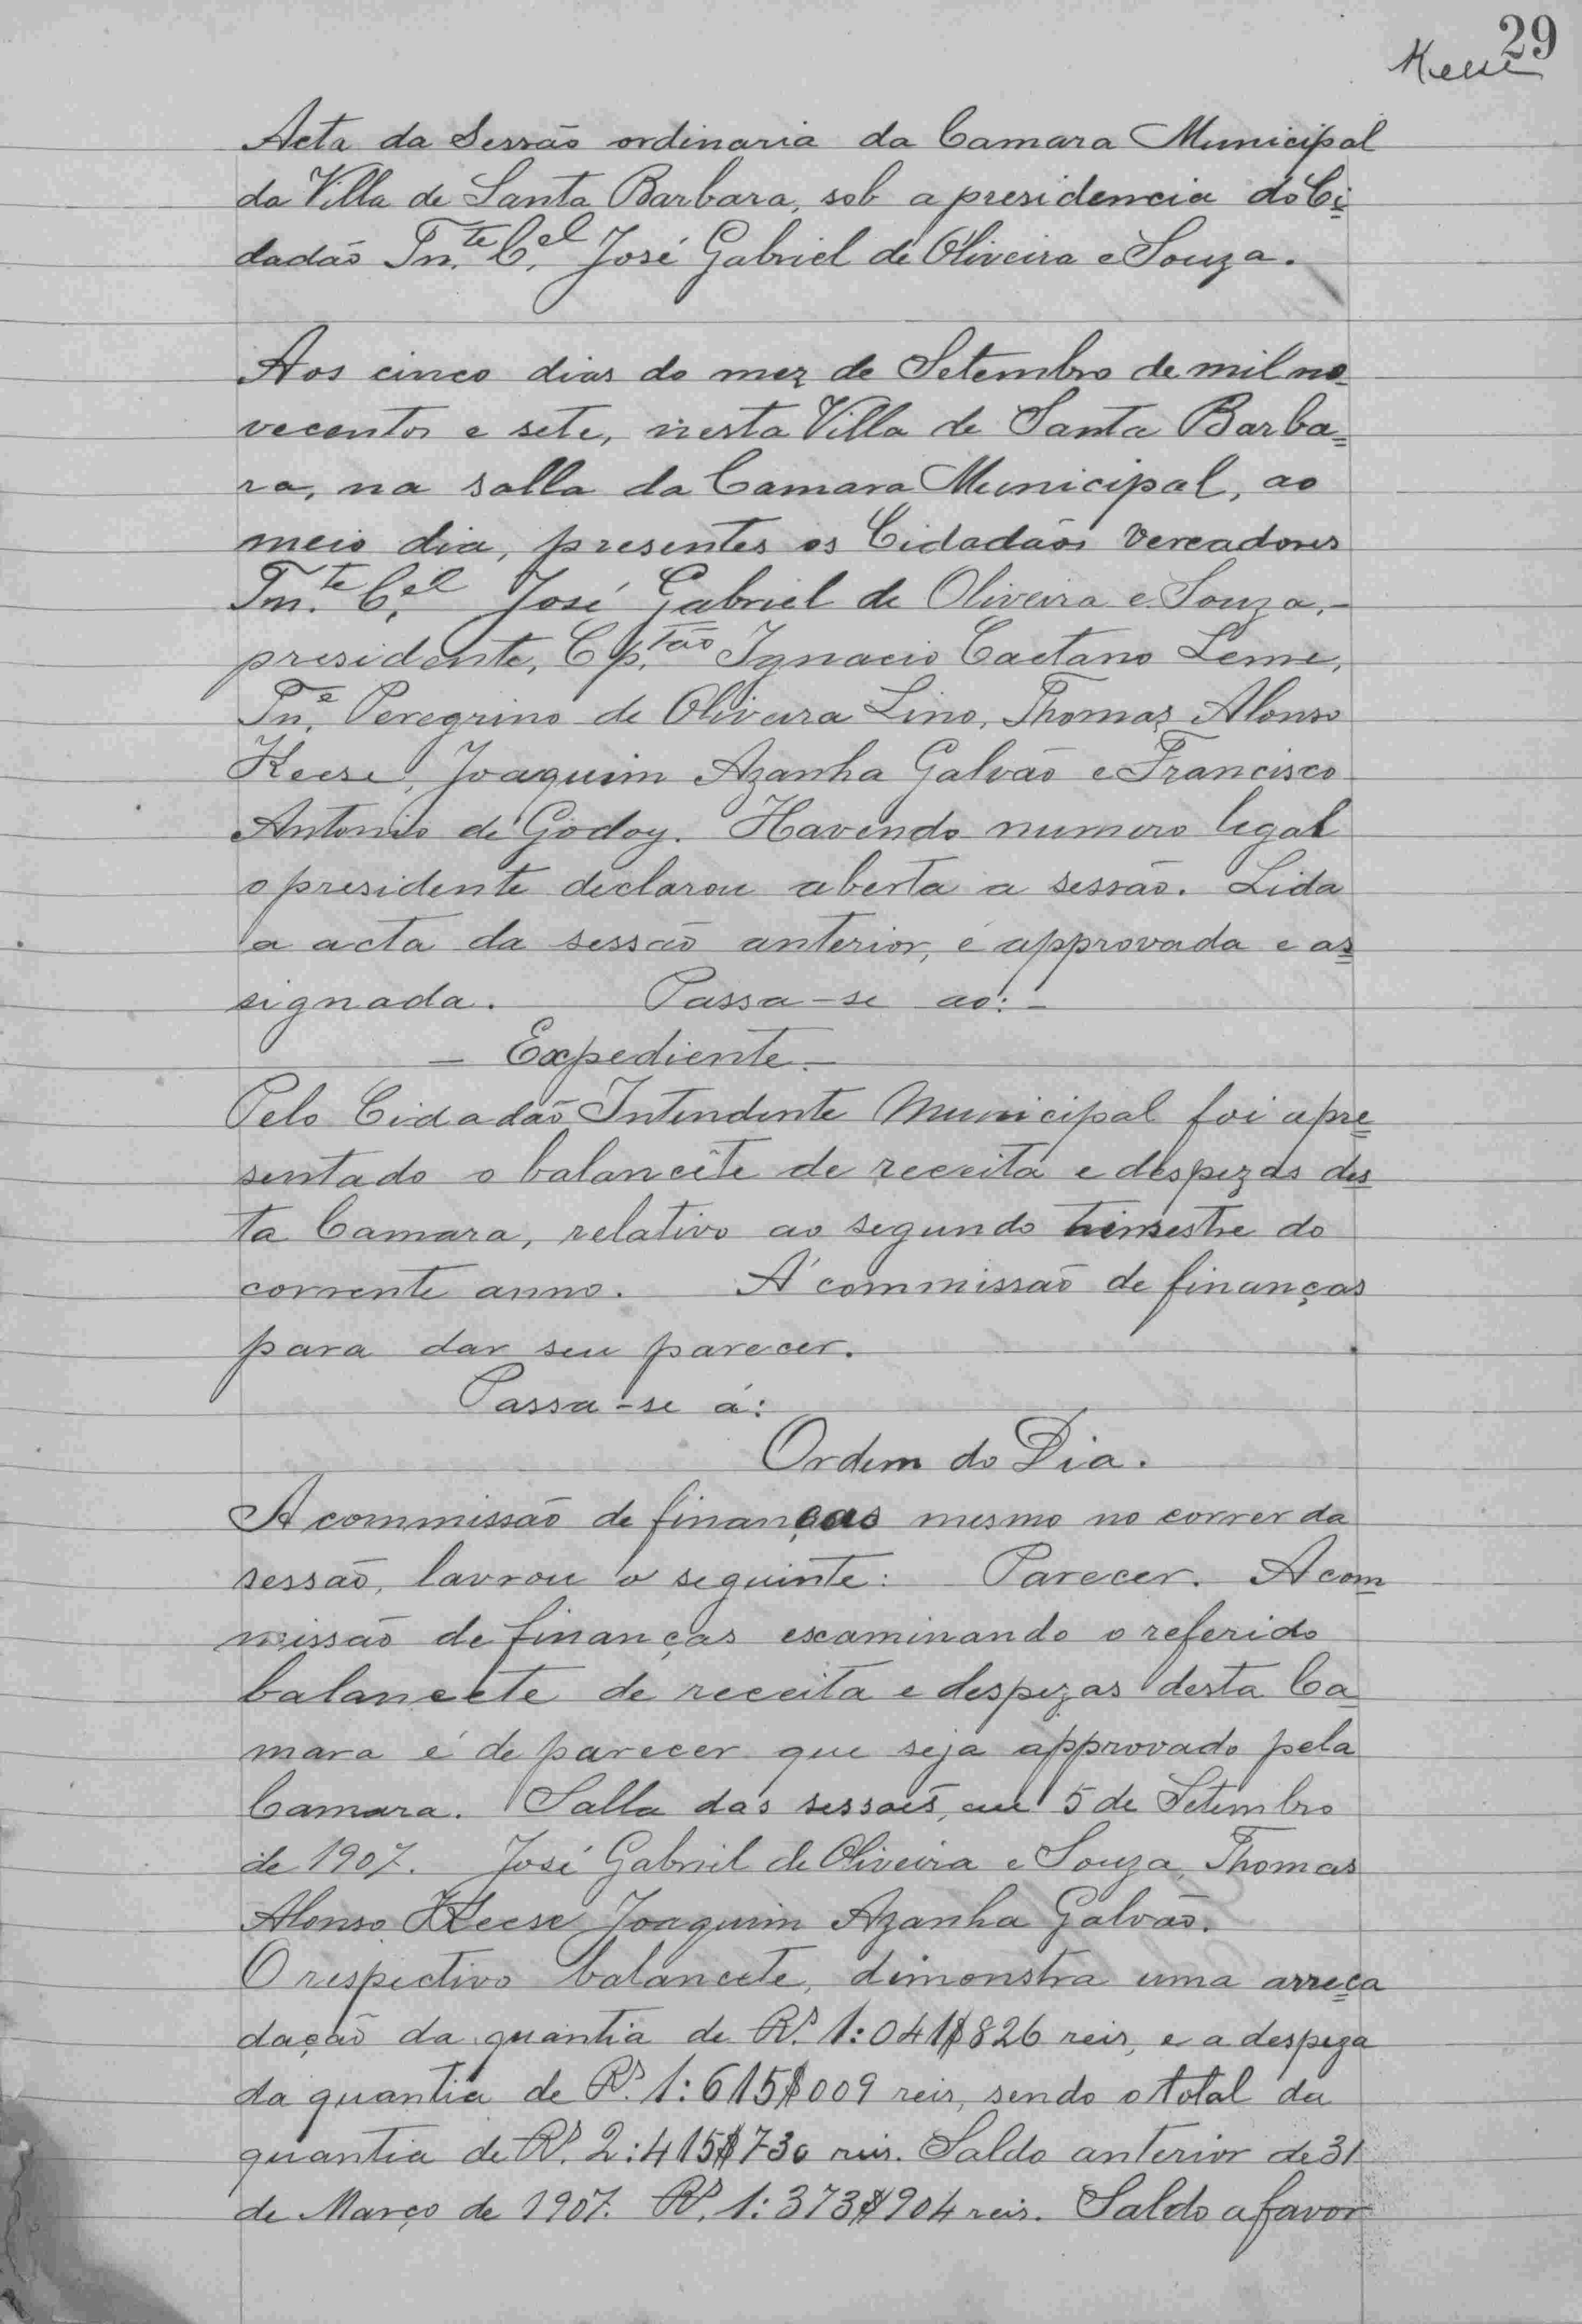 29
Keese
Acta da Sessão ordinaria da Camara Municipal
da Villa de Santa Barbara, sob a presidencia do Ci=
dadão Tn.te C.el José Gabriel de Oliveira e Souza.
Aos cinco dias do mez de Setembro de mil no=
vecentos e sete, nesta Villa de Santa Barba=
ra, na salla da Camara Municipal, ao
meio dia, presentes os Cidadãos Vereadores
Tn.te C.el José Gabriel de Oliveira e Souza,-
presidente, Cp.tão Ignacio Caetano Leme,
Tn.e Peregrino de Oliveira Lino, Thomaz Alonso
Keese, Joaquim Azanha Galvão e Francisco
Antonio de Godoy. Havendo numero legal
o presidente declarou aberta a sessão. Lida
a acta da sessão anterior, é approvada e as=
signada. Passa-se ao:-
- Expediente -
Pelo Cidadão Intendente Municipal foi apre=
sentado o balancête de receita e despezas des=
ta Camara, relativo ao segundo trimestre do
corrente anno. Á commissão de finanças
para dar seu parecer.
Passa-se á:
Ordem do Dia.
A commissão de finanças mesmo no correr da
sessão, lavrou o seguinte: Parecer. A com=
missão de finanças examinando o referido
balancete de receita e despezas desta Ca=
mara é de parecer que seja approvado pela
Camara. Salla das sessões, em 5 de Setembro
de 1907. José Gabriel de Oliveira e Souza, Thomas
Alonso Keese Joaquim Azanha Galvão.
O respectivo balancete, dimonstra uma arreca
dação da quantia de Rs. 1:041$826 reis, e a despeza
da quantia de Rs. 1:615$009 reis, sendo o total da
quantia de Rs. 2:415$730 reis. Saldo anterior de 31
de Março de 1907. Rs. 1:373$904 reis. Saldo a favor